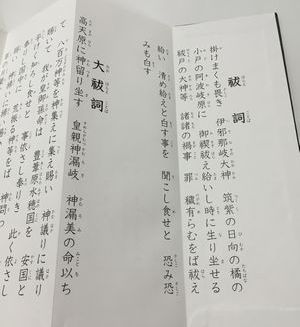 祓詞
掛けまくも畏き　伊邪那岐大神　筑紫の日向の橘の
小戸の阿波岐原に　御禊祓え給いし時に生り坐せる
祓戸の大神等　諸諸の禍事　罪　穢有らむをば祓え
給い　清め給えと白す事を　聞こし食せと　恐み恐
みも白す
大祓詞
高天原に神留り坐す　皇親神漏岐　神漏美の命以ち
て　八百万神等を神集えに集え賜い　神議りに議り
賜いて　我が皇御孫命は　豊葦原水穂国を　安国と
平けく知ろし食せと　事依さし奉りき　此く依さし
奉りし国中に　荒振る神等をば　神問わ